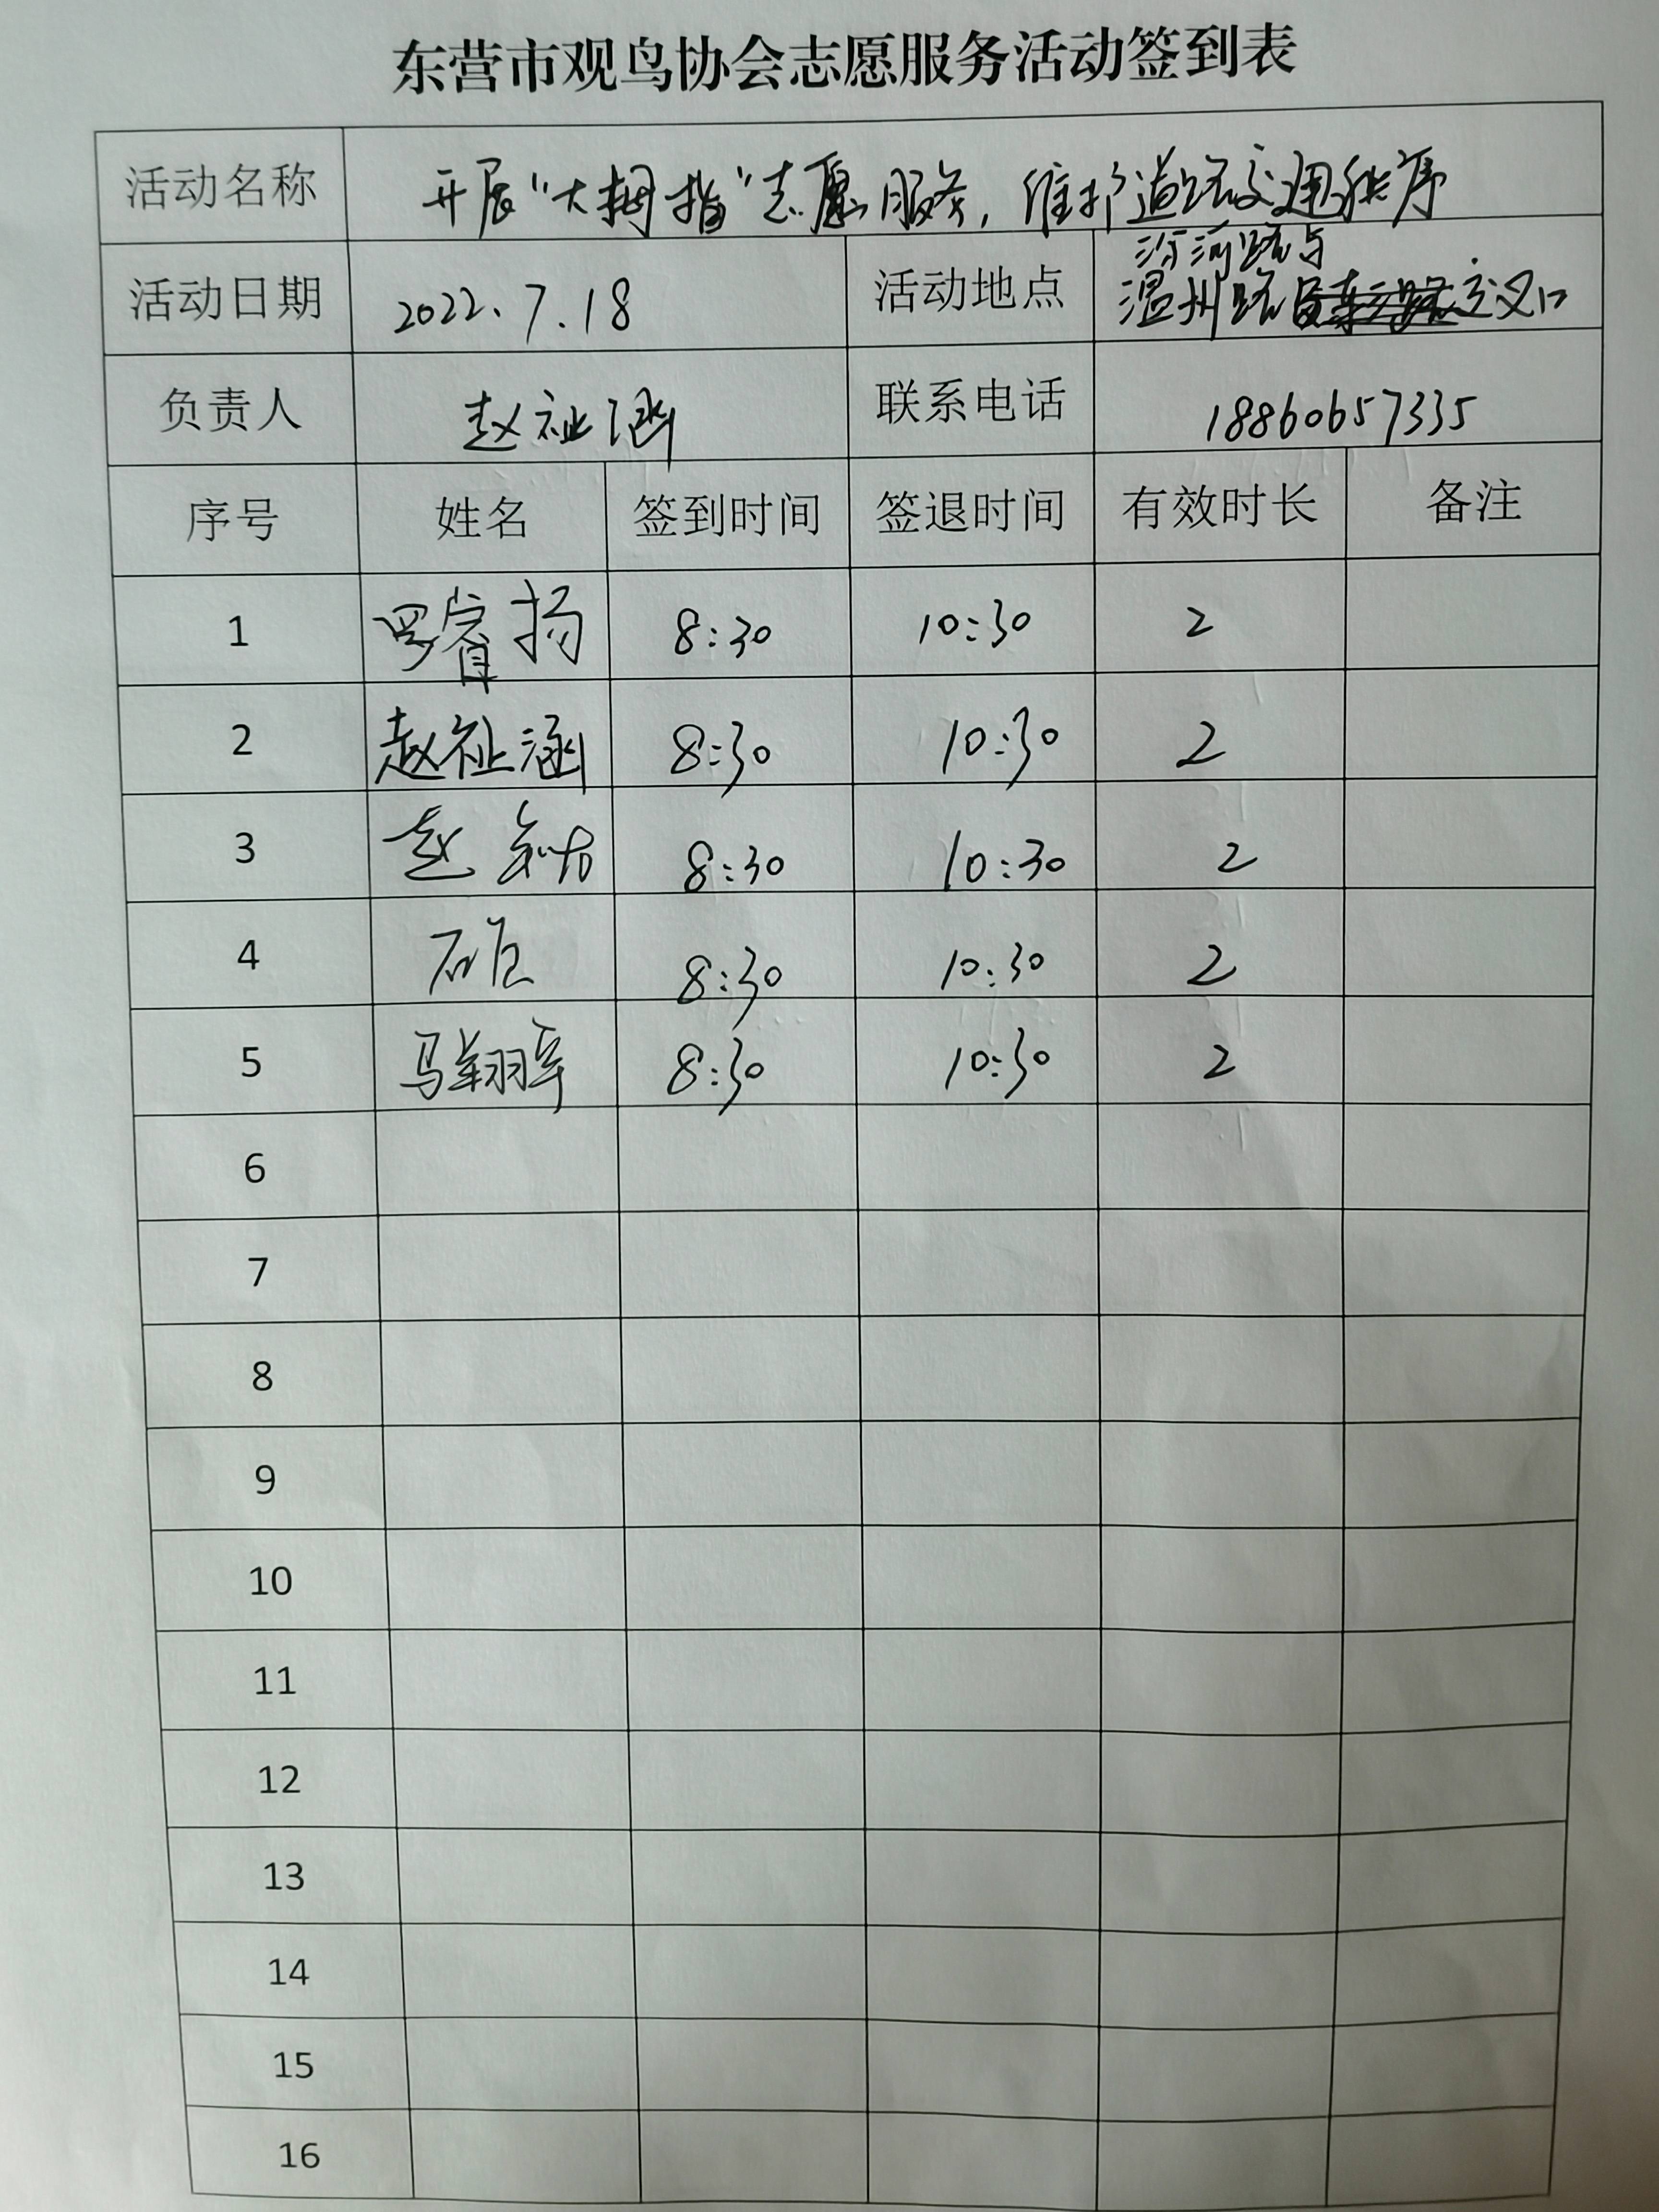 东营市观鸟协会志愿服务活动签到表
活动名称 开展“大拇指”志愿服务，维护道路交通秩序
活动日期 2022.7.18 活动地点 汾河路与温州路交叉口
负责人 赵祉涵 联系电话 18860657335
序号 姓名 签到时间 签退时间 有效时长 备注
1 罗睿扬 8:30 10:30 2
2 赵祉涵 8:30 10:30 2
3 赵 8:30 10:30 2
4 石 8:30 10:30 2
5 马翔宇 8:30 10:30 2
6
7
8
9
10
11
12
13
14
15
16